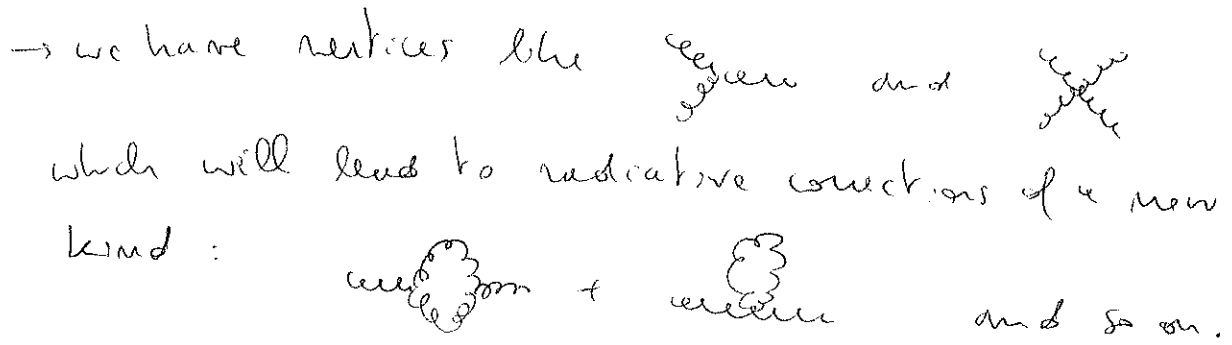 → we have vertices like and
which will lead to radiative corrections of a new
kind : + and so on.